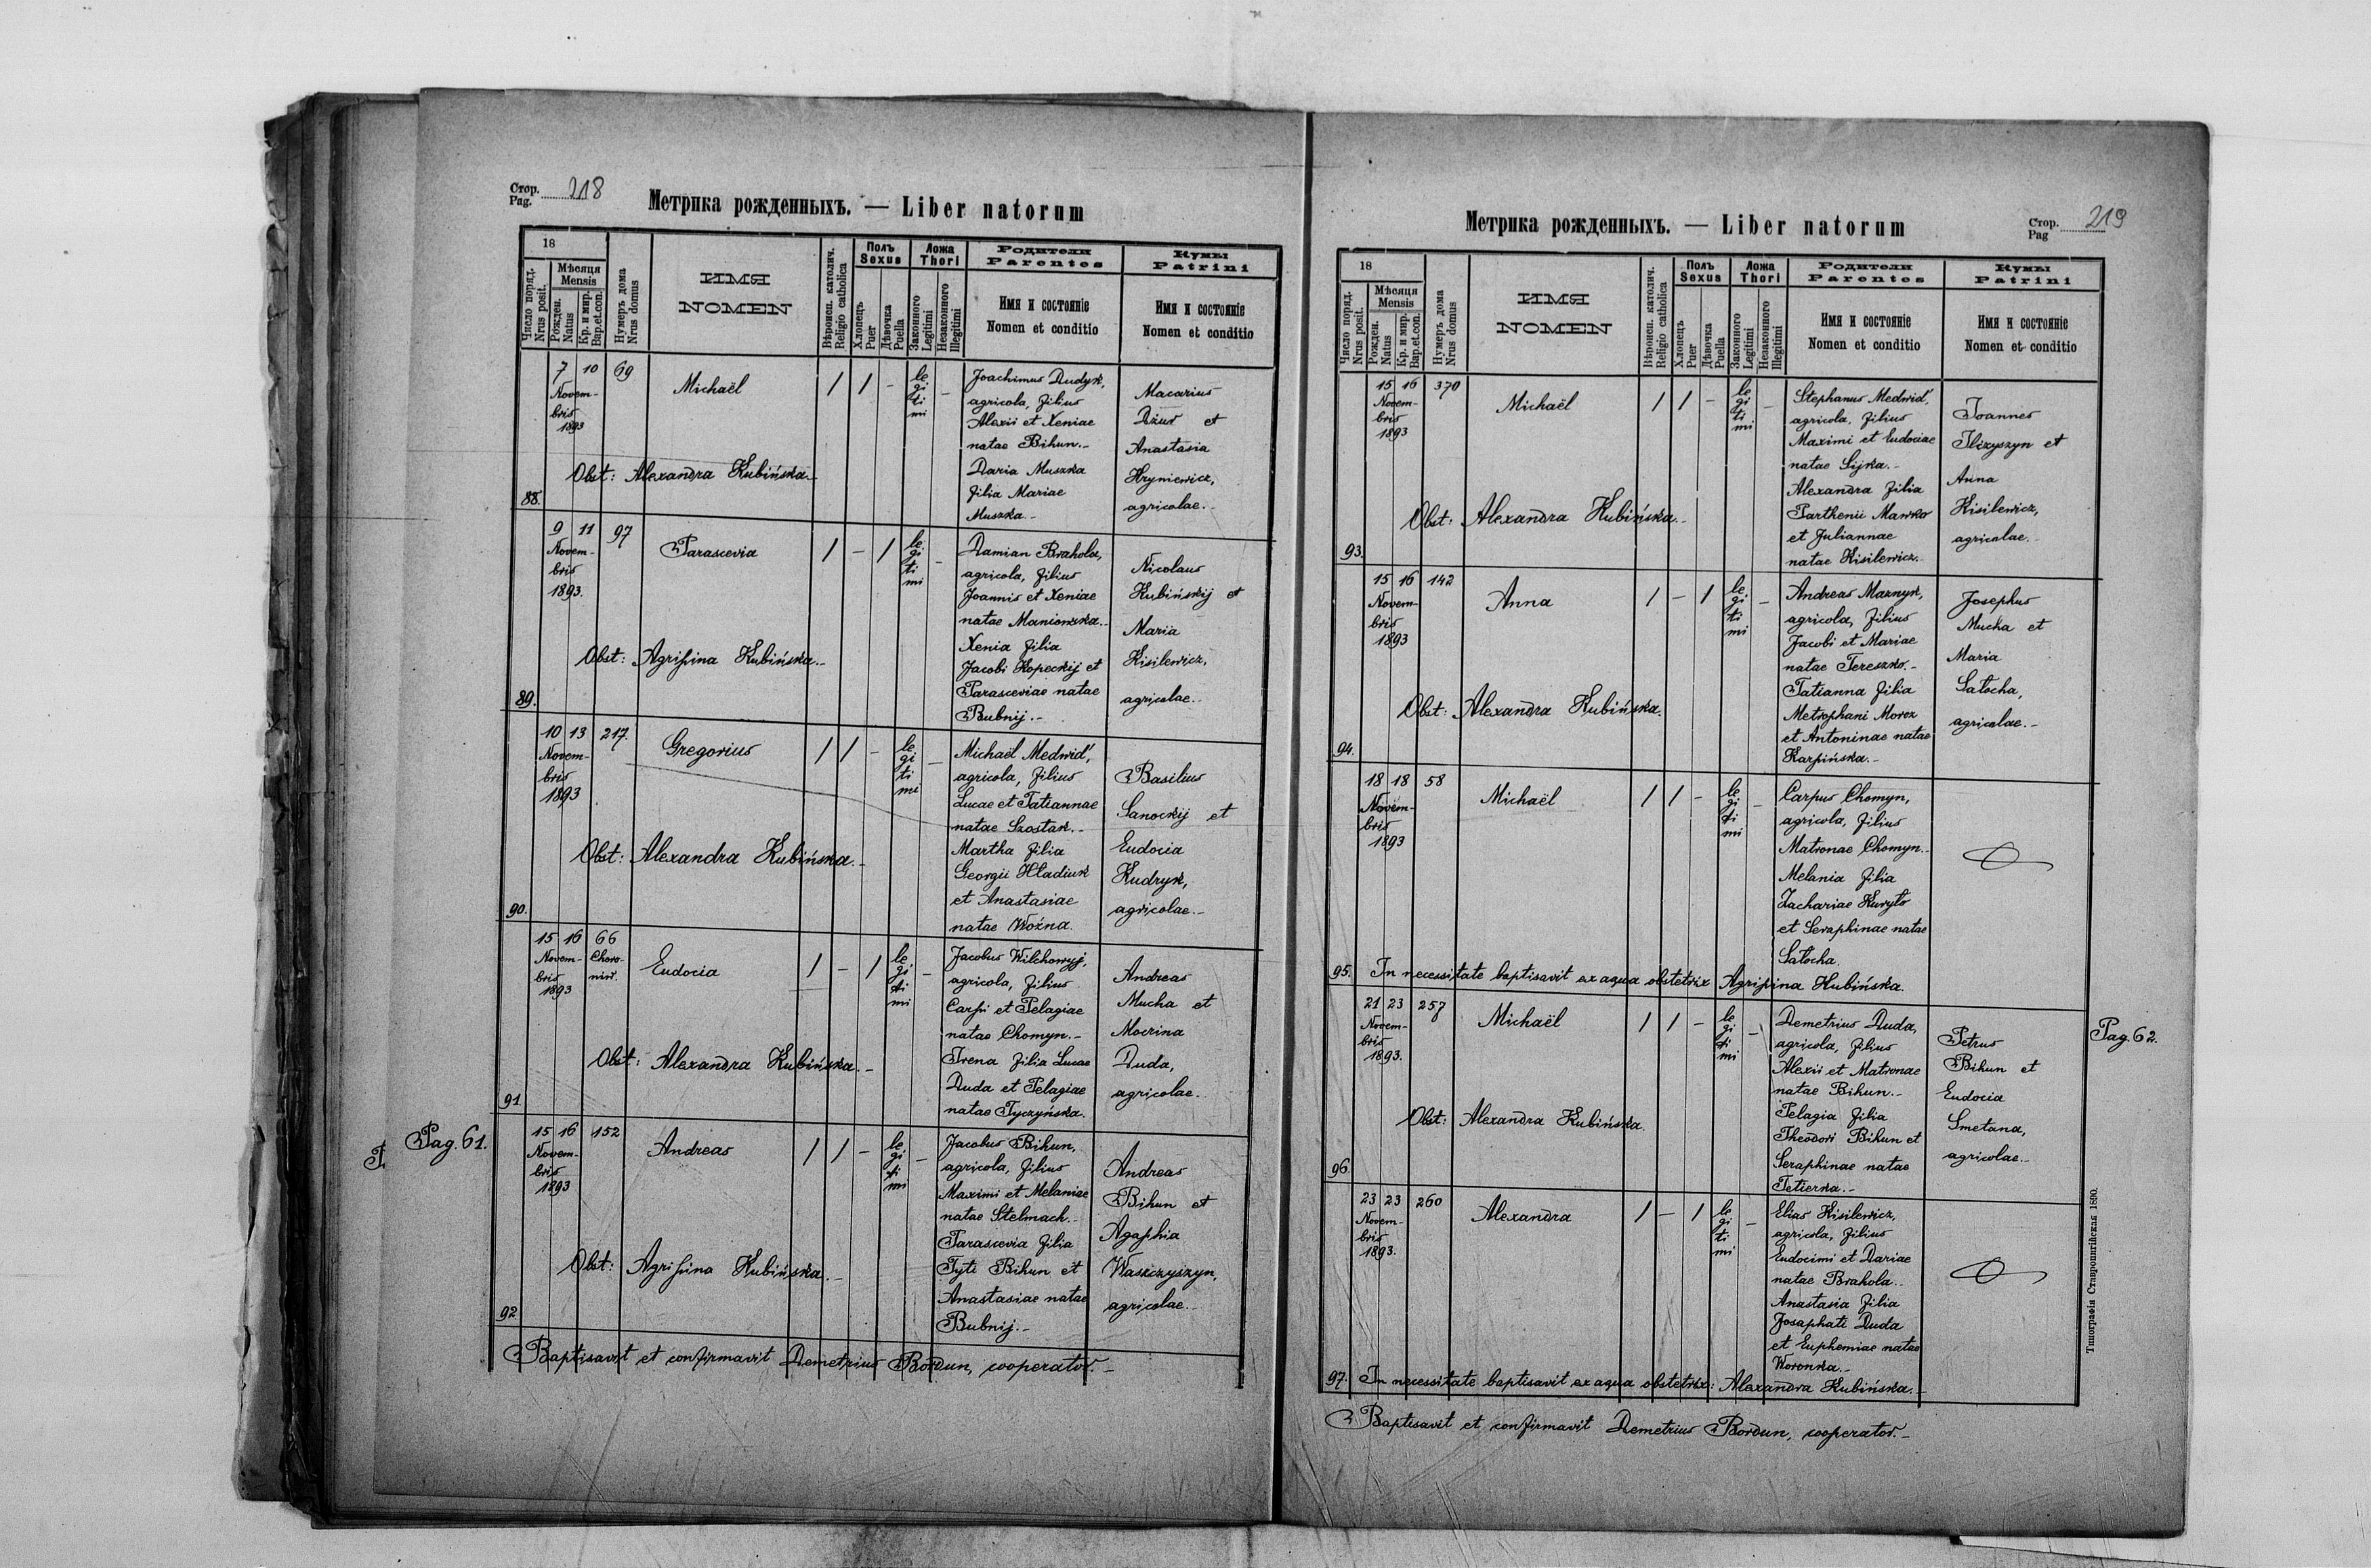 Стор. Pag. 218
Метрика рожденныхъ. — Liber natorum
18
Число поряд. Nrus posit.
Мѣсяця Mensis
Рожден. Natus
Кр. и мир. Bap. et. con.
Нумеръ дома Nrus domus
ИМЯ
NOMEN
Вѣроисп. католич. Religio catholica
Полъ Sexus
Хлопецъ Puer
Дѣвочка Puella
Ложа Thori
Законного Legitimi
Незаконного Illegitimi
Родители Parentes
Имя и состояніе
Nomen et conditio
Кумы Patrini
Имя и состояніе
Nomen et conditio
88.
7 10 69
Novem-
bris
1893
Michaël
1 1 - le
gi
ti
mi -
Joachimus Dudyk,
agricola, filius
Alexii et Xeniae
natae Bihun.-
Daria Muszka
filia Mariae
Muszka.-
Macarius
Dżus et
Anastasia
Hryniewicz,
agricolae.-
Obst: Alexandra Kubińska.-
89.
9 11 97
Novem-
bris
1893.
Parascevia
1 - 1 le
gi
ti
mi -
Damian Brahola,
agricola, filius
Joannis et Xeniae
natae Manionzka.-
Xenia filia
Jacobi Kopeckij et
Parasceviae natae
Bubnij.-
Nicolaus
Kubińskij et
Maria
Kisilewicz,
agricolae.-
Obst: Agripina Kubińska.-
90.
10 13 217.
Novem-
bris
1893
Gregorius
1 1 - le
gi
ti
mi -
Michaël Medwid',
agricola, filius
Lucae et Tatiannae
natae Szostak.-
Martha filia
Georgii Hladiuk
et Anastasiae
natae Woźna.
Basilius
Sanockij et
Eudocia
Kudryk,
agricolae.-
Obst: Alexandra Kubińska.-
91.
15 16 66
Novem-
bris
1893
Choro-
niw.
Eudocia
1 - 1 le
gi
ti
mi -
Jacobus Wilchowyj,
agricola, filius
Carpi et Pelagiae
natae Chomyn.-
Irena filia Lucae
Duda et Pelagiae
natae Tyczyńska.
Andreas
Mucha et
Mocrina
Duda,
agricolae.-
Obst: Alexandra Kubińska.-
Pag. 61.
92.
15 16 152
Novem-
bris
1893
Andreas
1 1 - le
gi
ti
mi -
Jacobus Bihun,
agricola, filius
Maximi et Melaniae
natae Stelmach.-
Parascevia filia
Tyti Bihun et
Anastasiae natae
Bubnij.-
Andreas
Bihun et
Agaphia
Waskczyszyn,
agricolae.-
Obst: Agripina Kubińska.-
Baptisavit et confirmavit Demetrius Bordun, cooperator.-
Метрика рожденныхъ. — Liber natorum
Стор. Pag 219
18
Число поряд. Nrus posit.
Мѣсяця Mensis
Рожден. Natus
Кр. и мир. Bap. et. con.
Нумеръ дома Nrus domus
ИМЯ
NOMEN
Вѣроисп. католич. Religio catholica
Полъ Sexus
Хлопецъ Puer
Дѣвочка Puella
Ложа Thori
Законного Legitimi
Незаконного Illegitimi
Родители Parentes
Имя и состояніе
Nomen et conditio
Кумы Patrini
Имя и состояніе
Nomen et conditio
93.
15 16 370
Novem-
bris
1893
Michaël
1 1 - le
gi
ti
mi -
Stephanus Medwid',
agricola, filius
Maximi et Eudociae
natae Sijka.-
Alexandra filia
Parthenii Mawko
et Juliannae
natae Kisilewicz.-
Joannes
Ilczyszyn et
Anna
Kisilewicz,
agricolae.-
Obst: Alexandra Kubińska.-
94.
15 16 142
Novem-
bris
1893
Anna
1 - 1 le
gi
ti
mi -
Andreas Maznyk,
agricola, filius
Jacobi et Mariae
natae Tereszko.-
Tatianna filia
Metrophani Moroz
et Antoninae natae
Karpińska.-
Josephus
Mucha et
Maria
Satocha,
agricolae.-
Obst: Alexandra Kubińska.
95.
18 18 58
Novem-
bris
1893
Michaël
1 1 - le
gi
ti
mi -
Carpus Chomyn,
agricola, filius
Matronae Chomyn.-
Melania filia
Zachariae Kuryło
et Seraphinae natae
Satocha.
In necessitate baptisavit ex aqua obstetrix Agripina Kubińska.
96.
21 23 257
Novem-
bris
1893.
Michaël
1 1 - le
gi
ti
mi -
Demetrius Duda,
agricola, filius
Alexii et Matronae
natae Bihun.-
Pelagia filia
Theodori Bihun et
Seraphinae natae
Tetierka.-
Petrus
Bihun et
Eudocia
Smetana,
agricolae.-
Pag. 62.
Obst: Alexandra Kubińska.
97.
23 23 260
Novem-
bris
1893.
Alexandra
1 - 1 le
gi
ti
mi -
Elias Kisilewicz,
agricola, filius
Eudocimi et Dariae
natae Brahola.-
Anastasia filia
Josaphati Duda
et Euphemiae natae
Woronka.-
In necessitate baptisavit ex aqua obstetrix: Alexandra Kubińska.-
Baptisavit et confirmavit Demetrius Bordun, cooperator.-
Типографія Ставропигійская 1890.